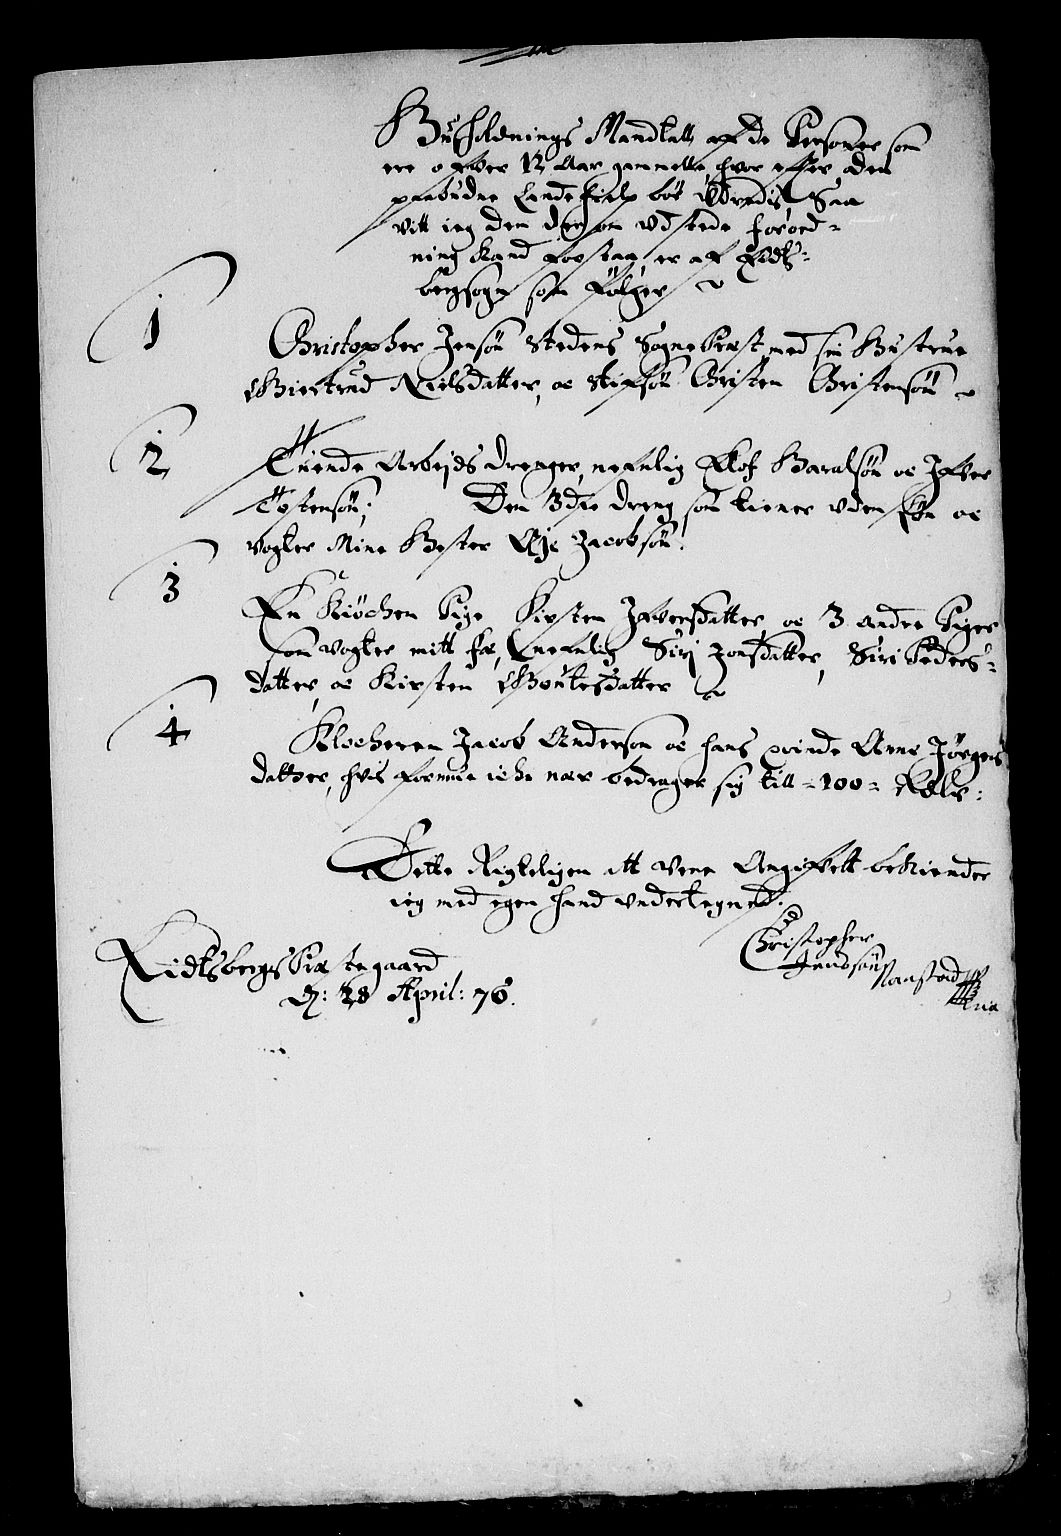 Huusholdnings Mandtall, af de Personer som
ere ofver 12 Aar gammelle, hvor efter, den
paabudne Landehielp bør Udredis, Saa
vitt ieg den der om udstede forord-
ning Kand forstaa, er af Eids-
bergsogn som følger
1
Christopher Jensøn Stedens Sognepræst, med sin Hustrue
Giertrud Nielsdatter, oc Stifsøn Christen Christensøn
2
Tuende Arbejds drenger, nefnlig Elof Haralsøn oc Ifver
Tostensøn; Den 3die dreng som tiener uden løn oc
vogter Mine Hester Aje Jacobsøn.
3
En Kiøchen Pige Kirsten Ifversdatter, oc 3 andre Piger
som vogter mitt fæ, nefnlig Siri Jonsdatter, Siri Peders-
datter, oc Kirsten Goutesdatter
4
Klocheren Jacob Anderson oc hans qvinde Anne Jørgens
datter, hvis formue iche nær bedrager sig till - 100 - Rdlr:
Dette Rigteligen att vere Angifvett bekiender
ieg med egen haand undertegned.
Eidtsbergs Præstegaard
D: 28 April: 76.
Christopher
Jenssøn Naastad